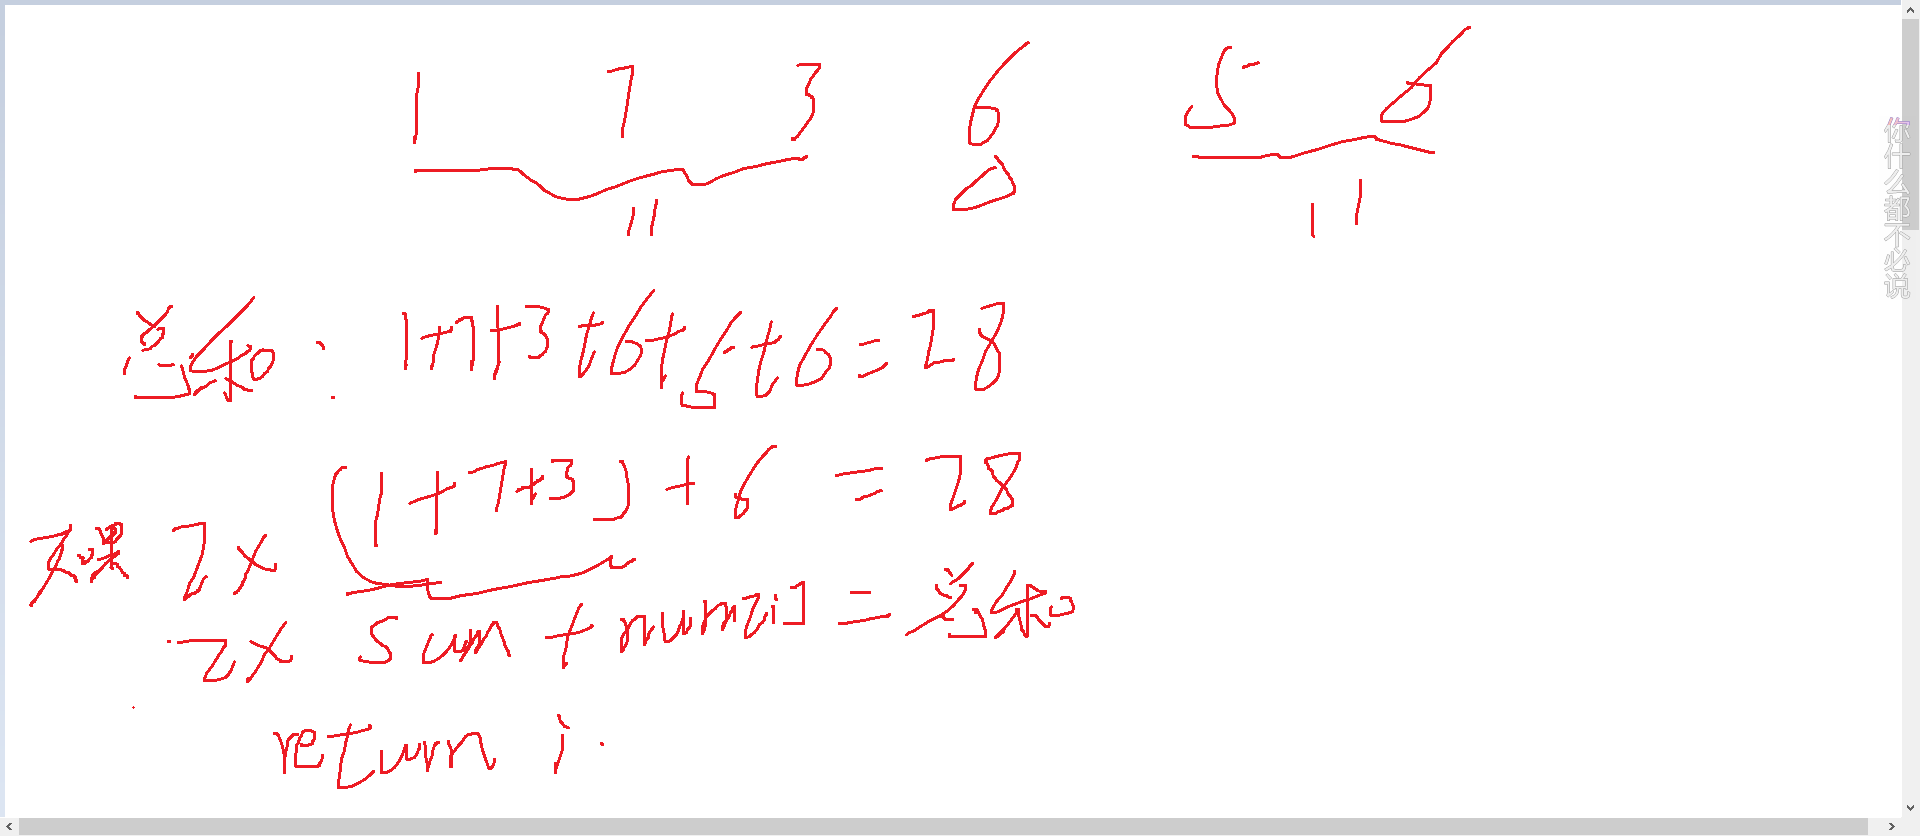 1 7 3 6 5 6
11 11
总和: 1+7+3+6+5+6=28
如果 2x (1+7+3)+6 = 28
2x sum + num[i] = 总和
return i.
你什么都不必说